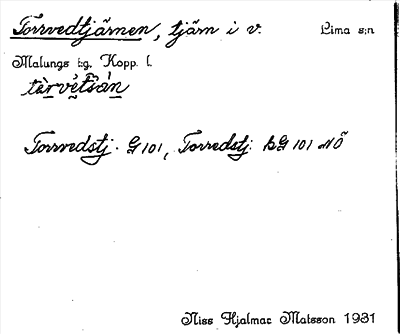 Torrvedtjärnen, tjärn i v. Lima s:n
Malungs tg. Kopp. l.
Torrvedstj. G 101, Torrvedstj. bG 101 NÖ
Nils Hjalmar Matsson 1931